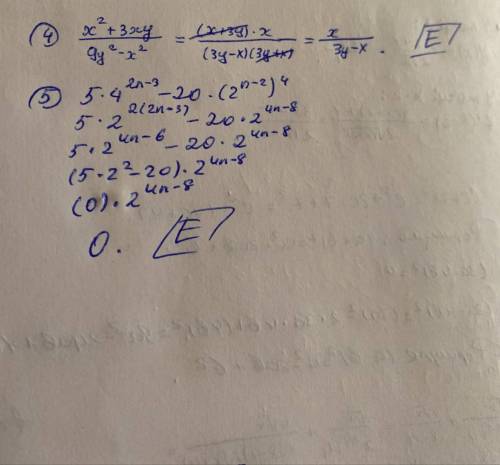 ④ (x² + 3xy)/(9y² - x²) = ((x+3y) · x)/((3y-x)(3y+x)) = x/(3y-x) . E
⑤ 5 · 4^(2n-3) - 20 · (2^(n-2))^4
5 · 2^(2(2n-3)) - 20 · 2^(4n-8)
5 · 2^(4n-6) - 20 · 2^(4n-8)
(5 · 2² - 20) · 2^(4n-8)
(0) · 2^(4n-8)
0. E